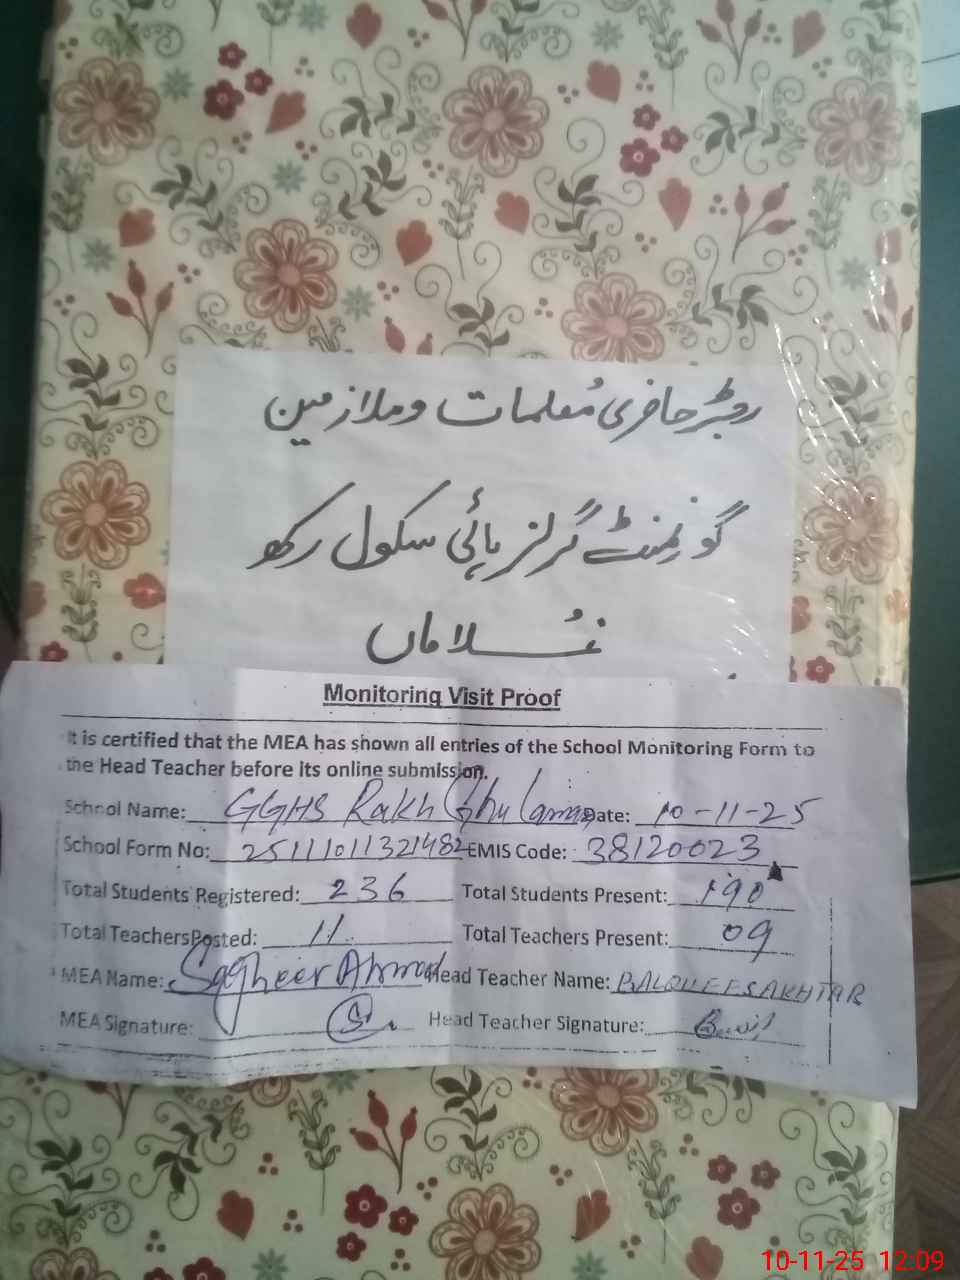 رجسٹر حاضری مُعلمات و ملازمین
گورنمنٹ گرلز ہائی سکول رکھ
غُلاماں
Monitoring Visit Proof
It is certified that the MEA has shown all entries of the School Monitoring Form to
the Head Teacher before its online submission.
School Name: GGHS Rakh Ghulaman Date: 10-11-25
School Form No: 25111011321482 EMIS Code: 38120023
Total Students Registered: 236 Total Students Present: 190
Total Teachers Posted: 11 Total Teachers Present: 09
MEA Name: Sagheer Ahmad Head Teacher Name: BALQUEES AKHTAR
MEA Signature: Head Teacher Signature:
10-11-25 12:09